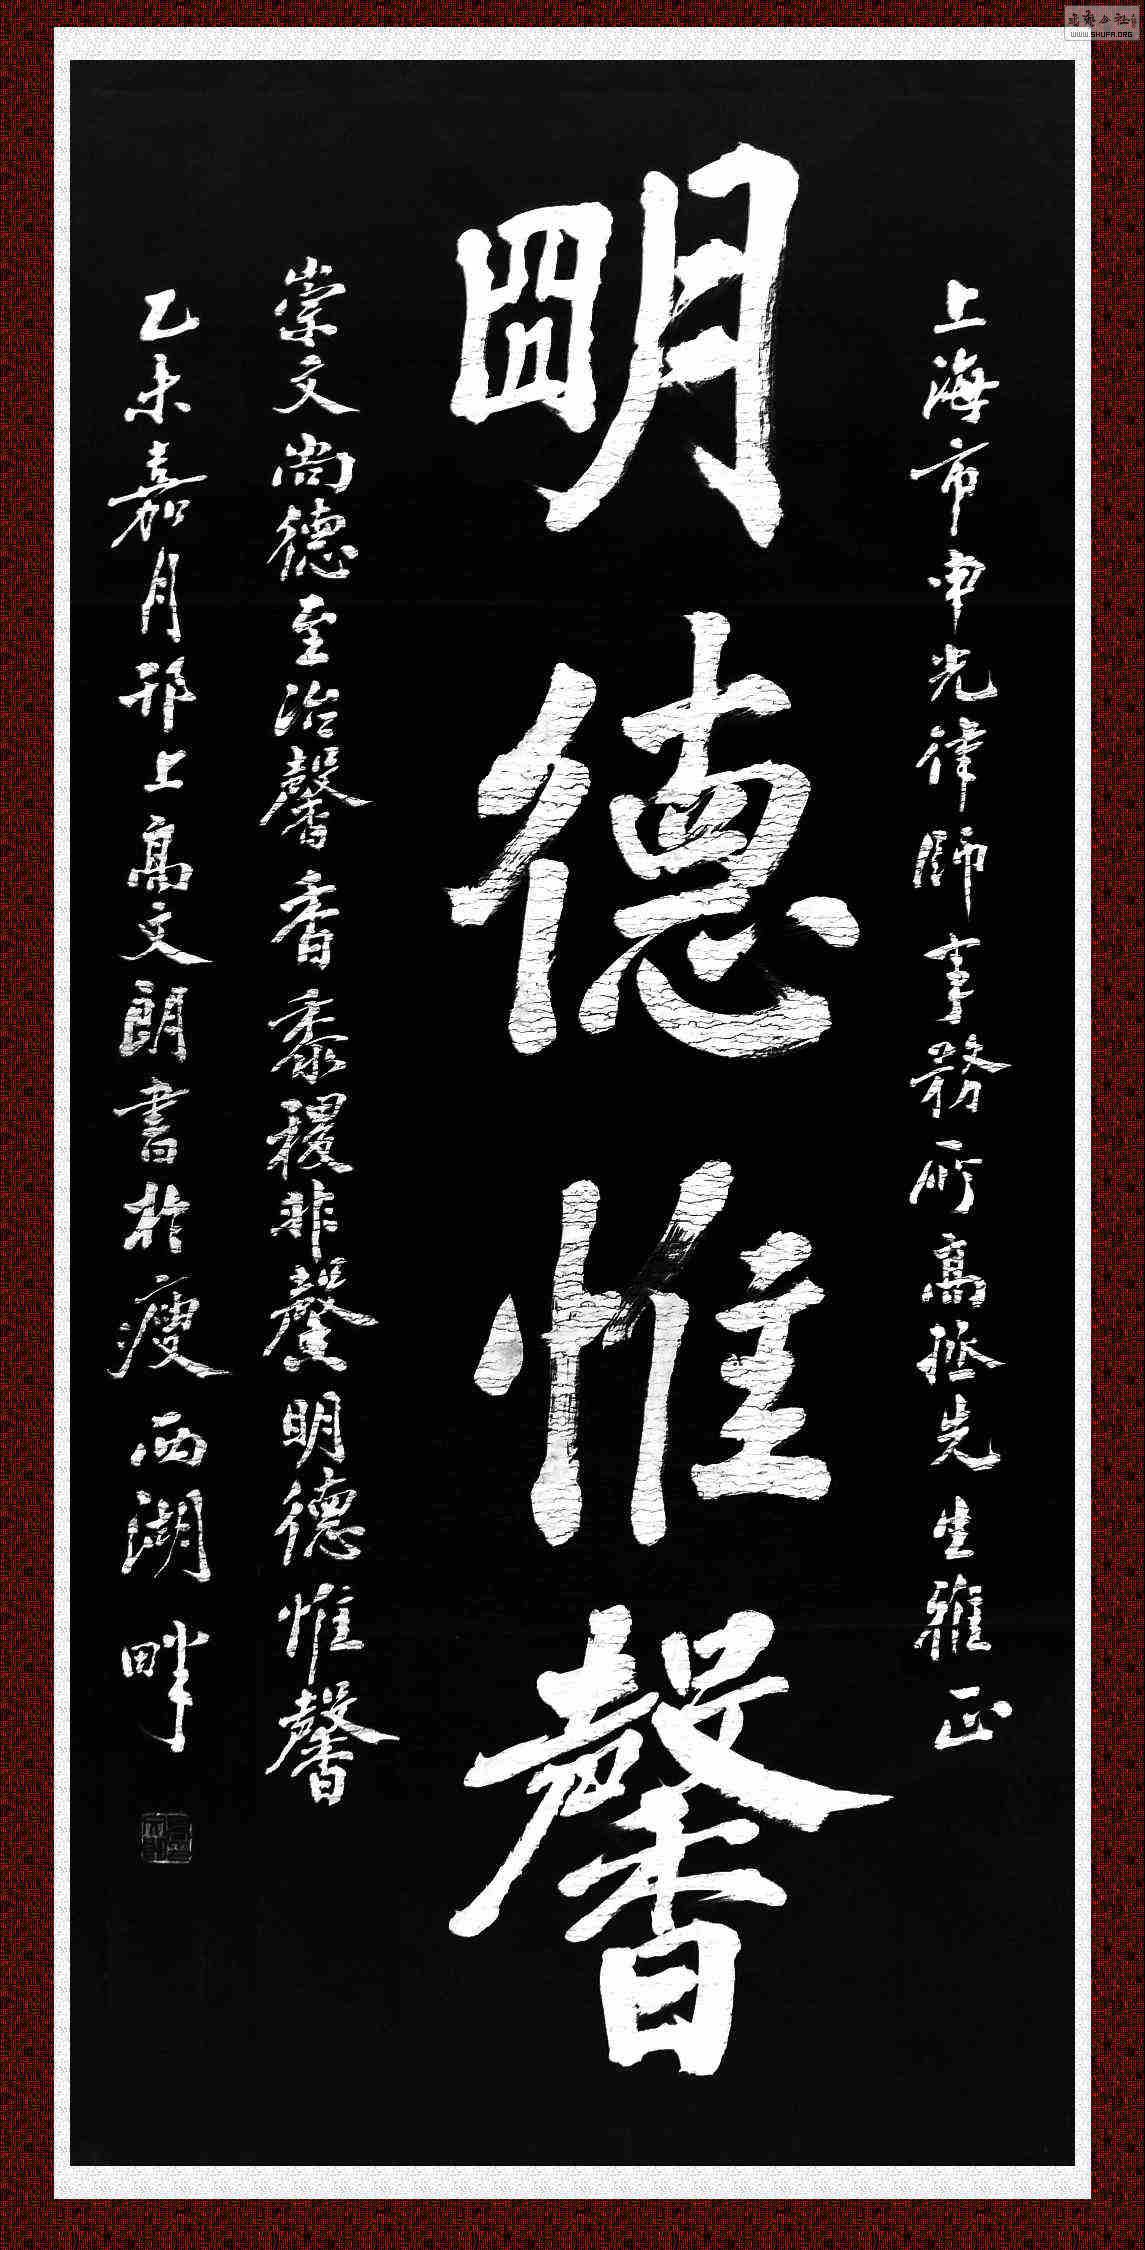 上海市申光律師事務所高拯先生雅正
明德惟馨
崇文尚德至治馨香黍稷非馨明德惟馨
乙未嘉月邗上高文朗書於瘦西湖畔
www.SHUFA.ORG